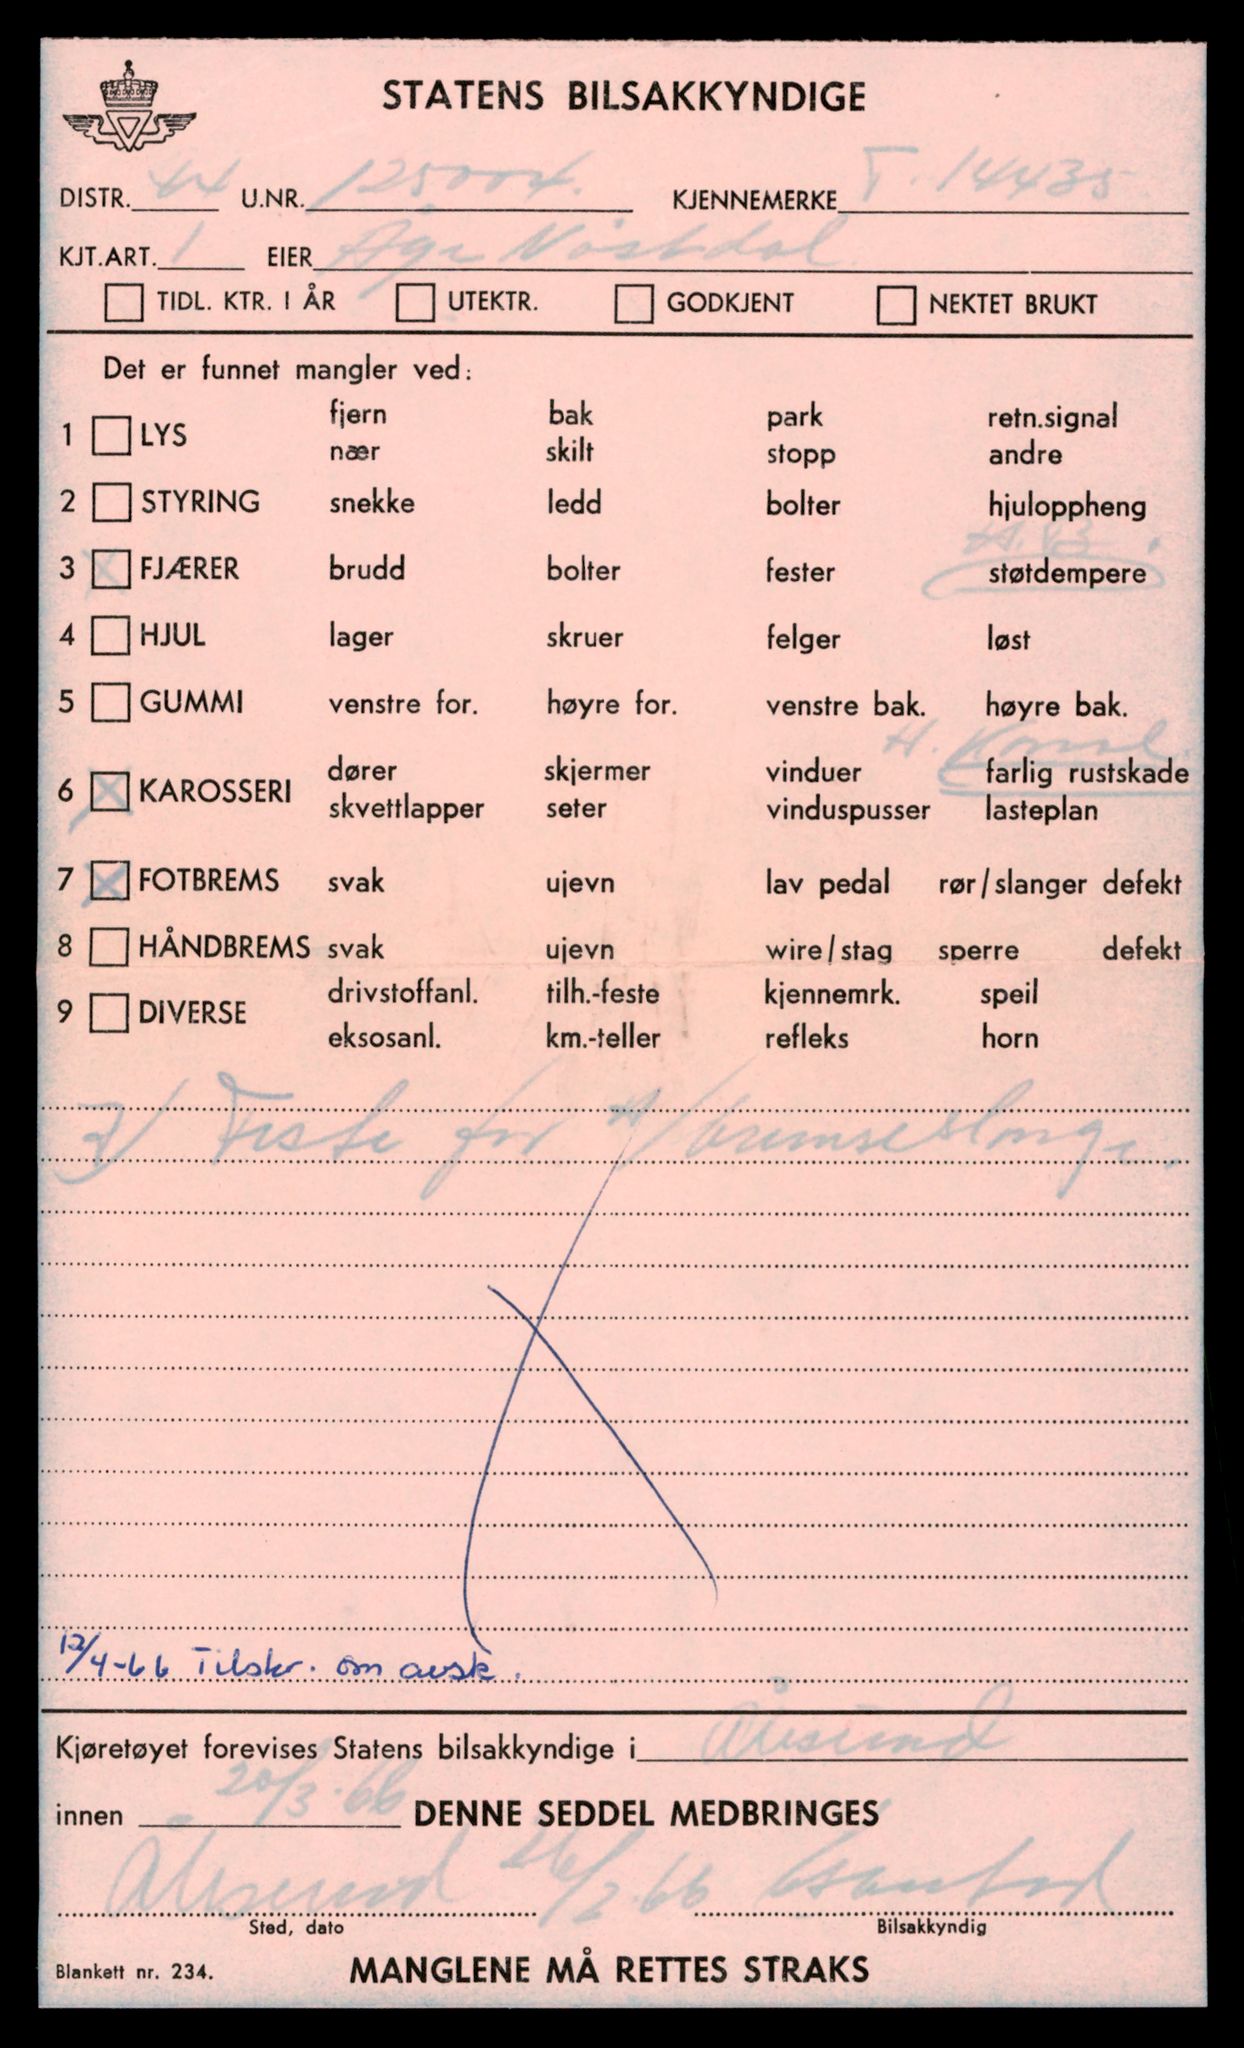 STATENS BILSAKKYNDIGE
DISTR. 44 U.NR. 125004. KJENNEMERKE T. 14435
KJT.ART. 1 EIER Åge Nostdal
TIDL. KTR. I ÅR UTEKTR. GODKJENT NEKTET BRUKT
Det er funnet mangler ved:
1 LYS fjern bak park retn.signal
nær skilt stopp andre
2 STYRING snekke ledd bolter hjuloppheng
H.B.
3 X FJÆRER brudd bolter fester støtdempere
4 HJUL lager skruer felger løst
5 GUMMI venstre for. høyre for. venstre bak. høyre bak.
H. Kanal.
6 X KAROSSERI dører skjermer vinduer farlig rustskade
skvettlapper seter vinduspusser lasteplan
7 X FOTBREMS svak ujevn lav pedal rør/slanger defekt
8 HÅNDBREMS svak ujevn wire/stag sperre defekt
9 DIVERSE drivstoffanl. tilh.-feste kjennemrk. speil
eksosanl. km.-teller refleks horn
7/ Feste for H/bremseslange.
12/4-66 Tilskr. om avsk.
Kjøretøyet forevises Statens bilsakkyndige i Ålesund
innen 20/3.66 DENNE SEDDEL MEDBRINGES
Ålesund 26/2.66
Sted, dato Bilsakkyndig
Blankett nr. 234. MANGLENE MÅ RETTES STRAKS